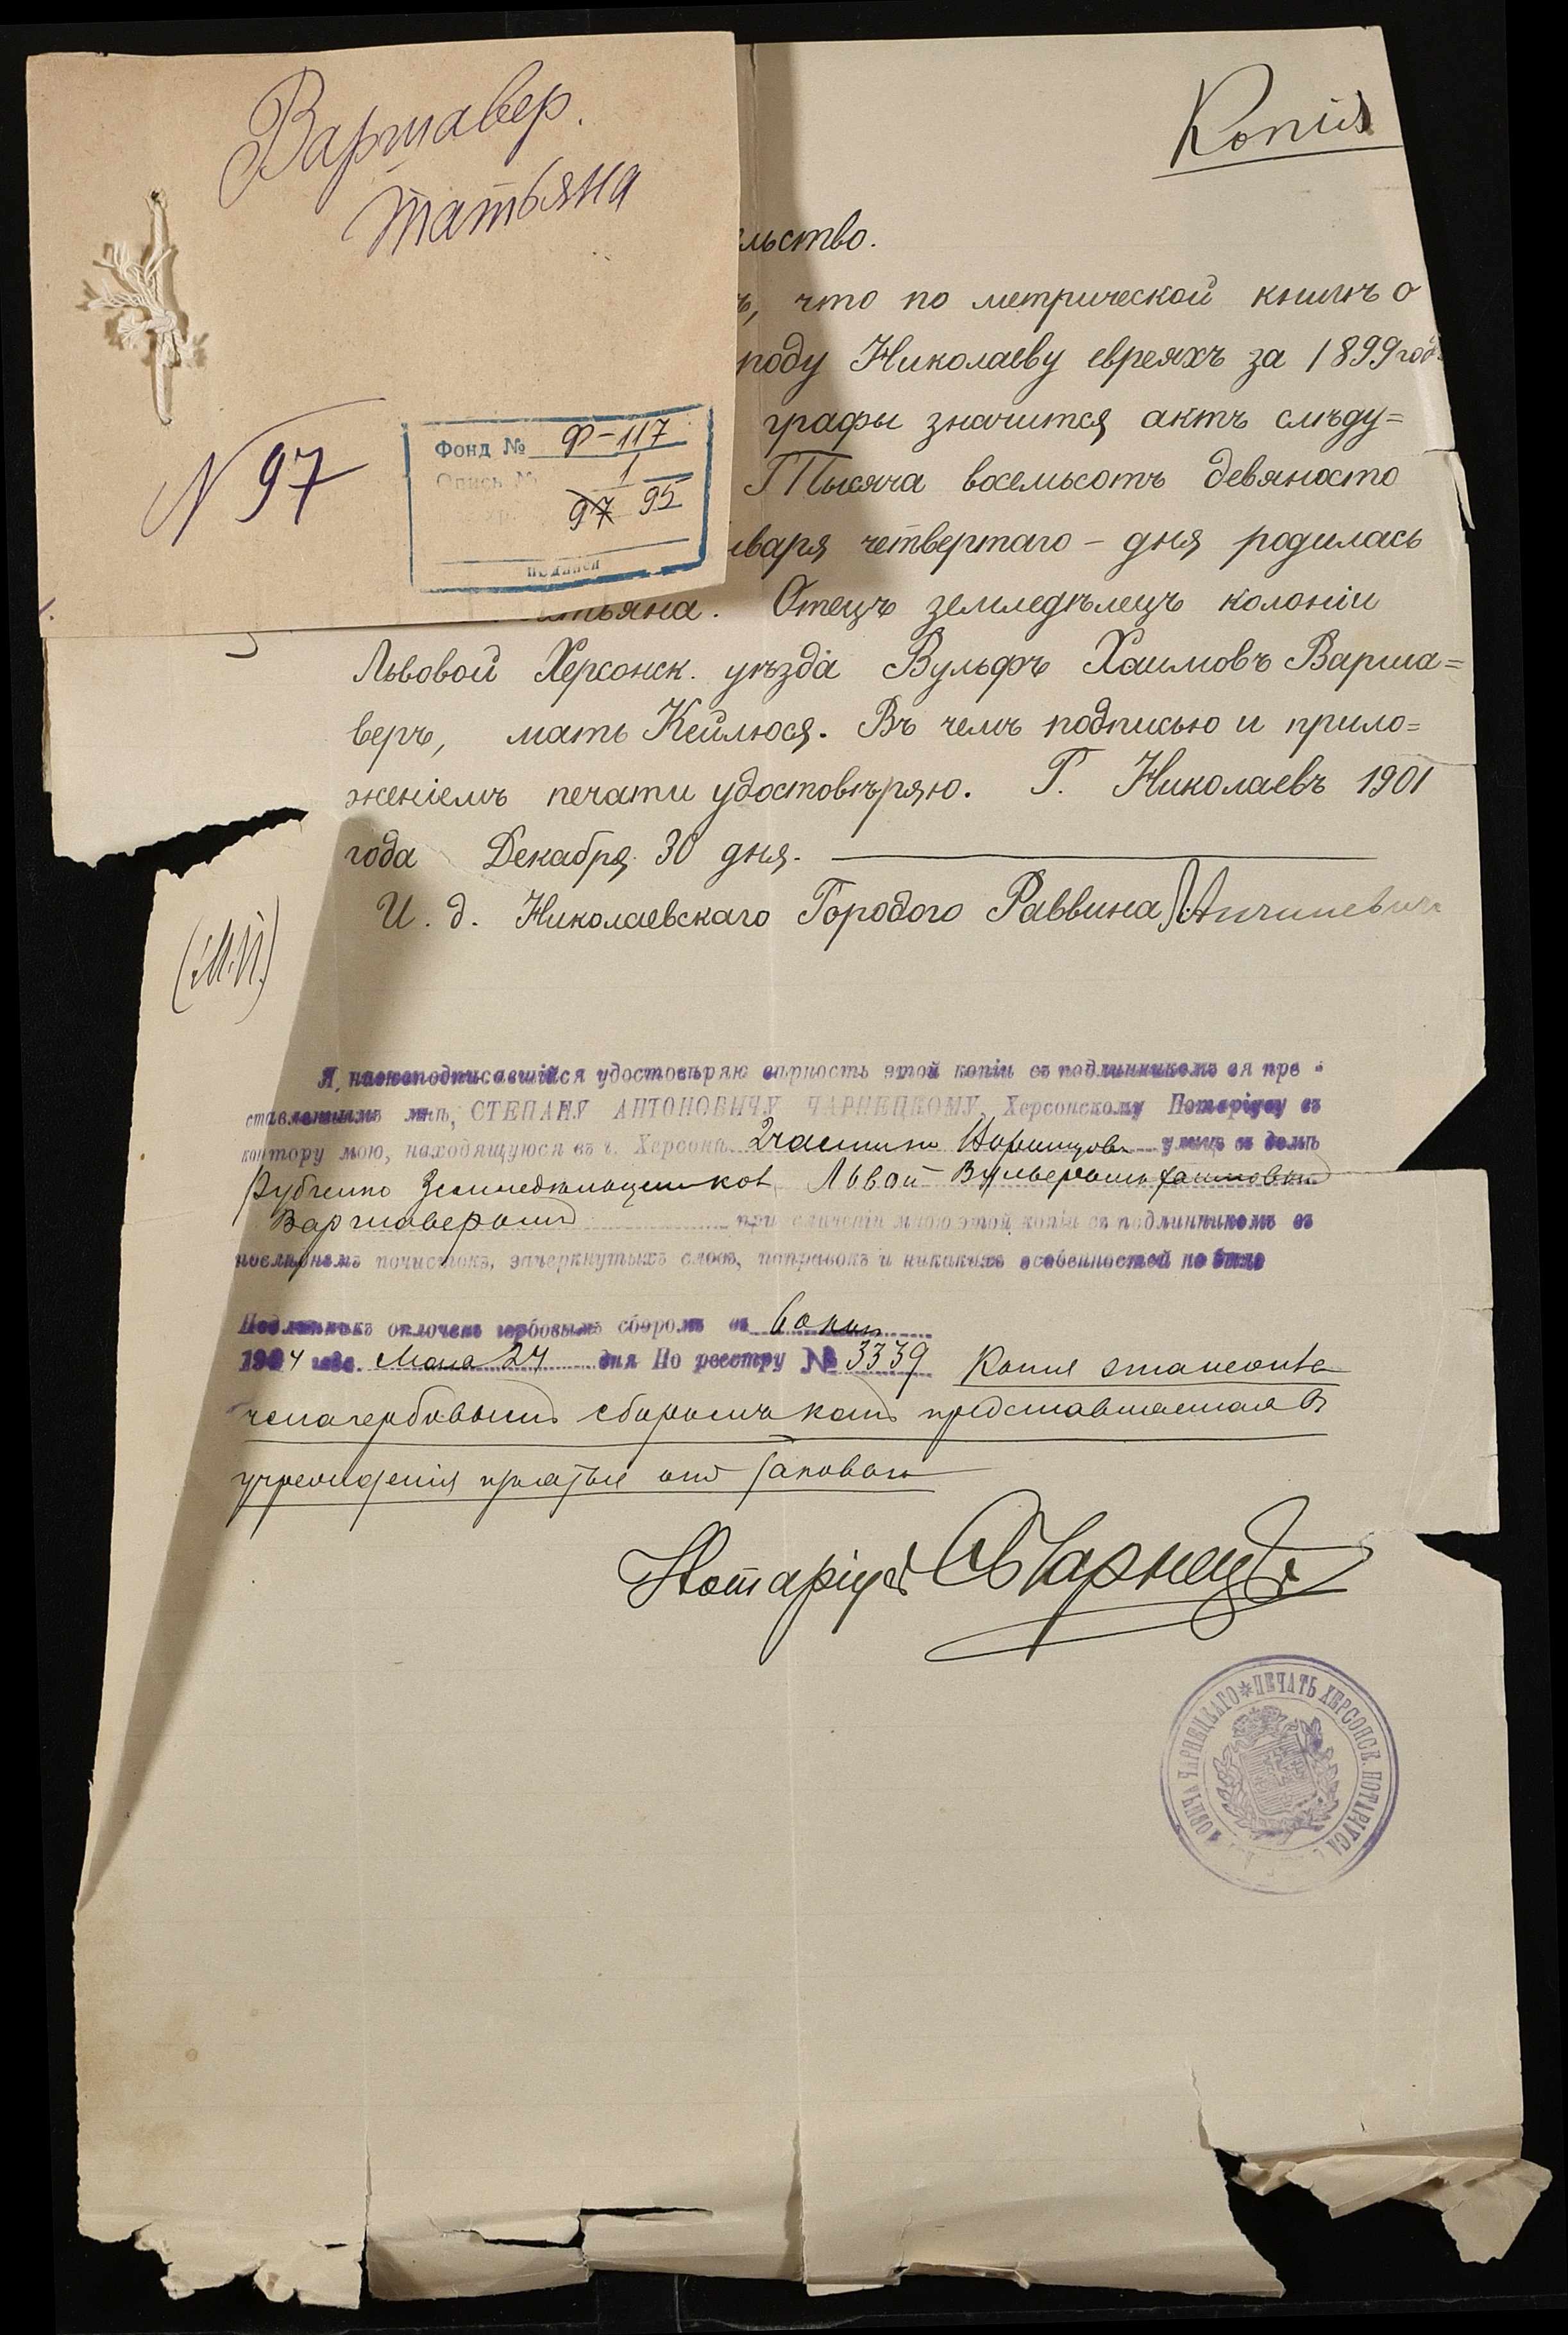 Варшавер.
Татьяна
N 97
Фонд № Ф-117
Опись № 1
97 95
Копія
льство.
ъ, что по метрической книгѣ о
роду Николаеву евреяхъ за 1899 годъ
графы значится актъ слѣду=
Тысяча восемьсотъ девяносто
нваря четвертаго – дня родилась
атьяна. Отецъ земледѣлецъ колоніи
Львовой Херсонск. уѣзда Вульфъ Хаимовъ Варша=
веръ, мать Кейлюся. Въ чемъ подписью и прило=
женіемъ печати удостовѣряю. Г. Николаевъ 1901
года Декабря 30 дня.
И. д. Николаевскаго Городого Раввина
(М.П.)
Я, нижеподписавшійся удостовѣряю вѣрность этой копіи съ подлинникомъ ея пред
ставленнымъ мнѣ, СТЕПАНУ АНТОНОВИЧУ ЧАРНЕЦКОМУ, Херсонскому Нотаріусу въ
контору мою, находящуюся въ г. Херсонѣ 2 части по улицѣ въ домѣ
Львой
Варшаверомъ при сличеніи мною этой копіи съ подлинникомъ въ
послѣднемъ почистокъ, зачеркнутыхъ словъ, поправокъ и никакихъ особенностей не было
Подлинникъ оплоченъ гербовымъ сборомъ въ 60 коп
1904 года Мая 24 дня По реестру № 3339 Копія
гербовымъ сборомъ какъ представляемая въ
учрежденія
Нотаріусъ С Чарнецкі
ПЕЧАТЬ ХЕРСОНСК. НОТАРІУСА ОВИЧА ЧАРНЕЦКАГО